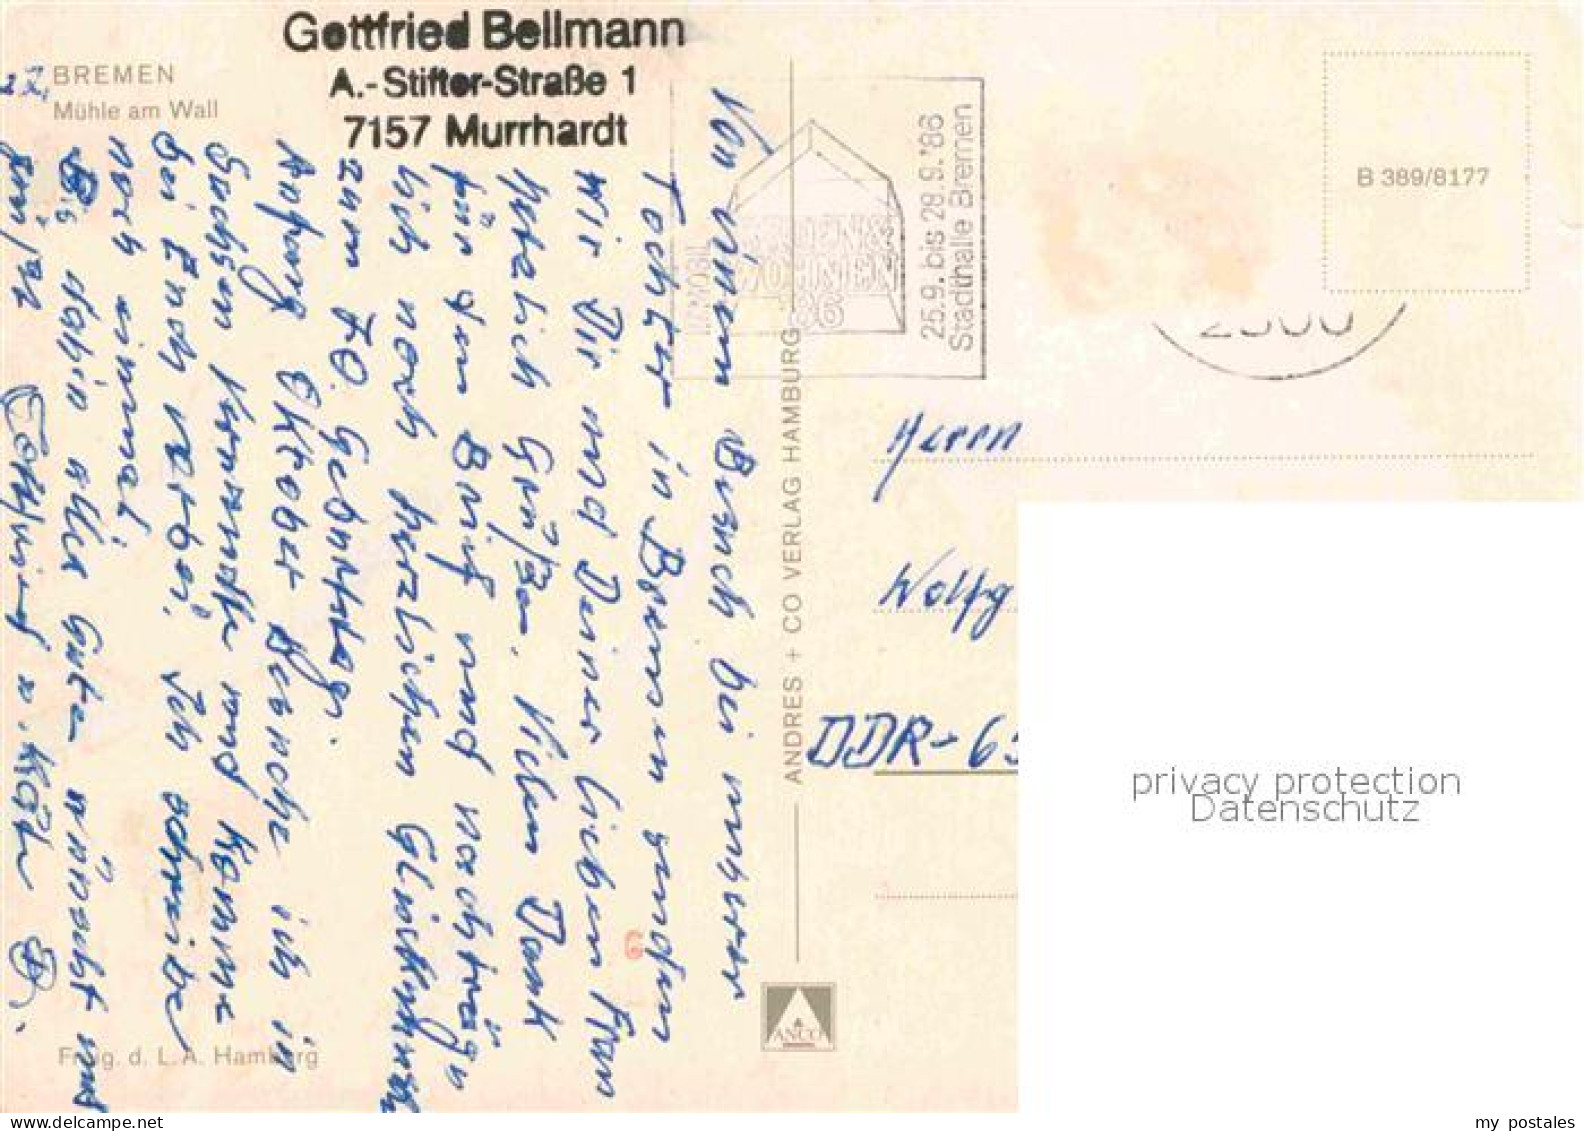 Gottfried Bellmann
A.-Stifter-Straße 1
7157 Murrhardt
BREMEN
Mühle am Wall
Von einem Besuch bei unserer
Tochter in Bremen senden
wir Dir und Deiner lieben Frau
herzlich Grüße. Vielen Dank
für den Brief und nachträg-
lich noch herzlichen Glückwunsch
zum 70. Geburtstag.
Anfang Oktober besuche ich in
Sachsen Verwandte und komme
bei Euch vorbei. Ich schreibe
noch einmal
Bis dahin alles Gute wünscht und
grüßt
Gottfried u. Käthe B.
Freig. d. L. A. Hamburg
ANDRES + CO VERLAG HAMBURG
ANCO
WOHNEN
'86
25.9. bis 28.9.'86
Stadthalle Bremen
B 389/8177
2800
Herrn
Wolfg
DDR-65
privacy protection
Datenschutz
my postales